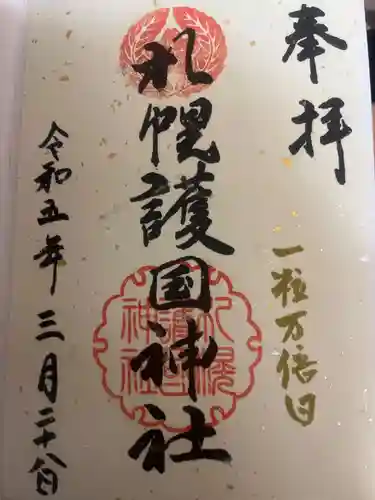 奉拝
一粒万倍日
札幌護国神社
札幌護国神社
令和五年三月二十八日